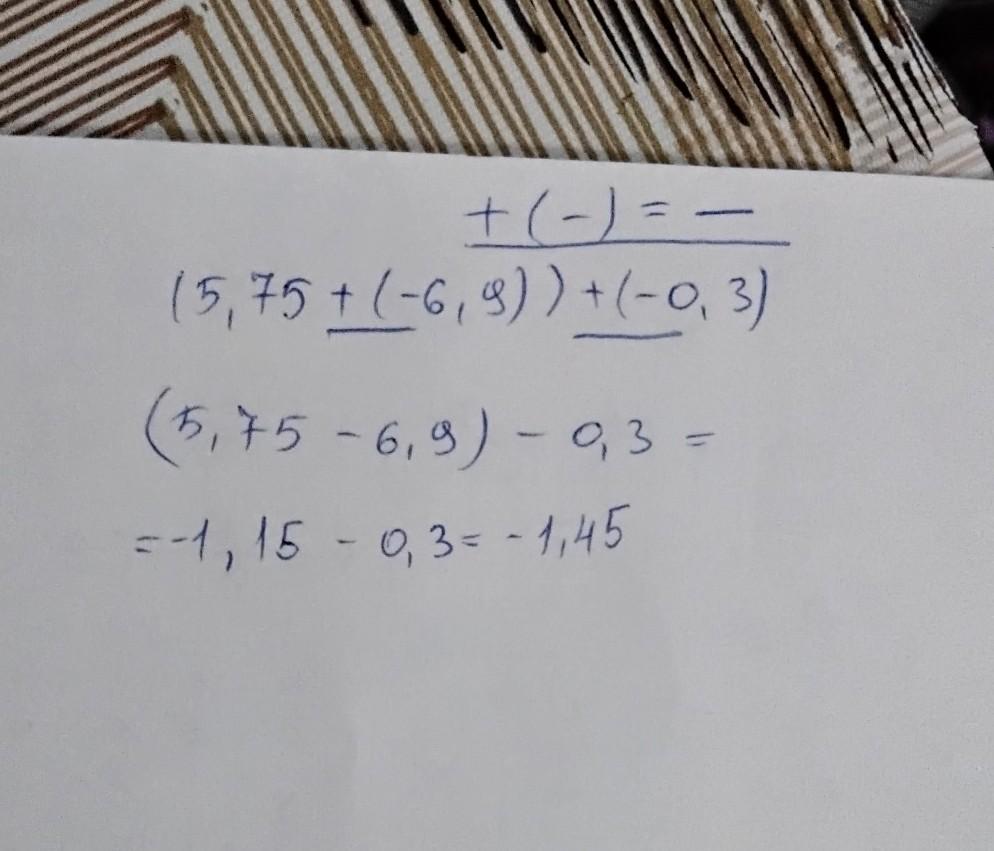 + (-) = —
(5,75 + (-6,9)) + (-0,3)
(5,75 - 6,9) - 0,3 =
= -1,15 - 0,3 = -1,45